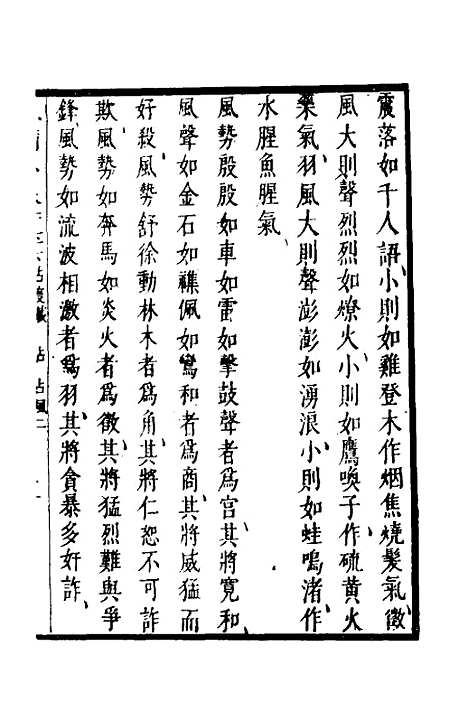 震落如千人語小則如雞登木作烟焦燒髮氣徵
風大則聲烈烈如燎火小則如鷹喚子作硫黃火
藥氣羽風大則聲澎澎如湧浪小則如蛙鳴渚作
水腥魚腥氣
風勢殷殷如車如雷如擊鼓聲者爲宮其將寬和
風聲如金石如禮佩如鸞和者爲商其將威猛而
好殺風勢舒徐動林木者爲角其將仁恕不可詐
欺風勢如奔馬如炎火者爲徵其將猛烈難與爭
鋒風勢如流波相激者爲羽其將貪暴多奸詐
占風二